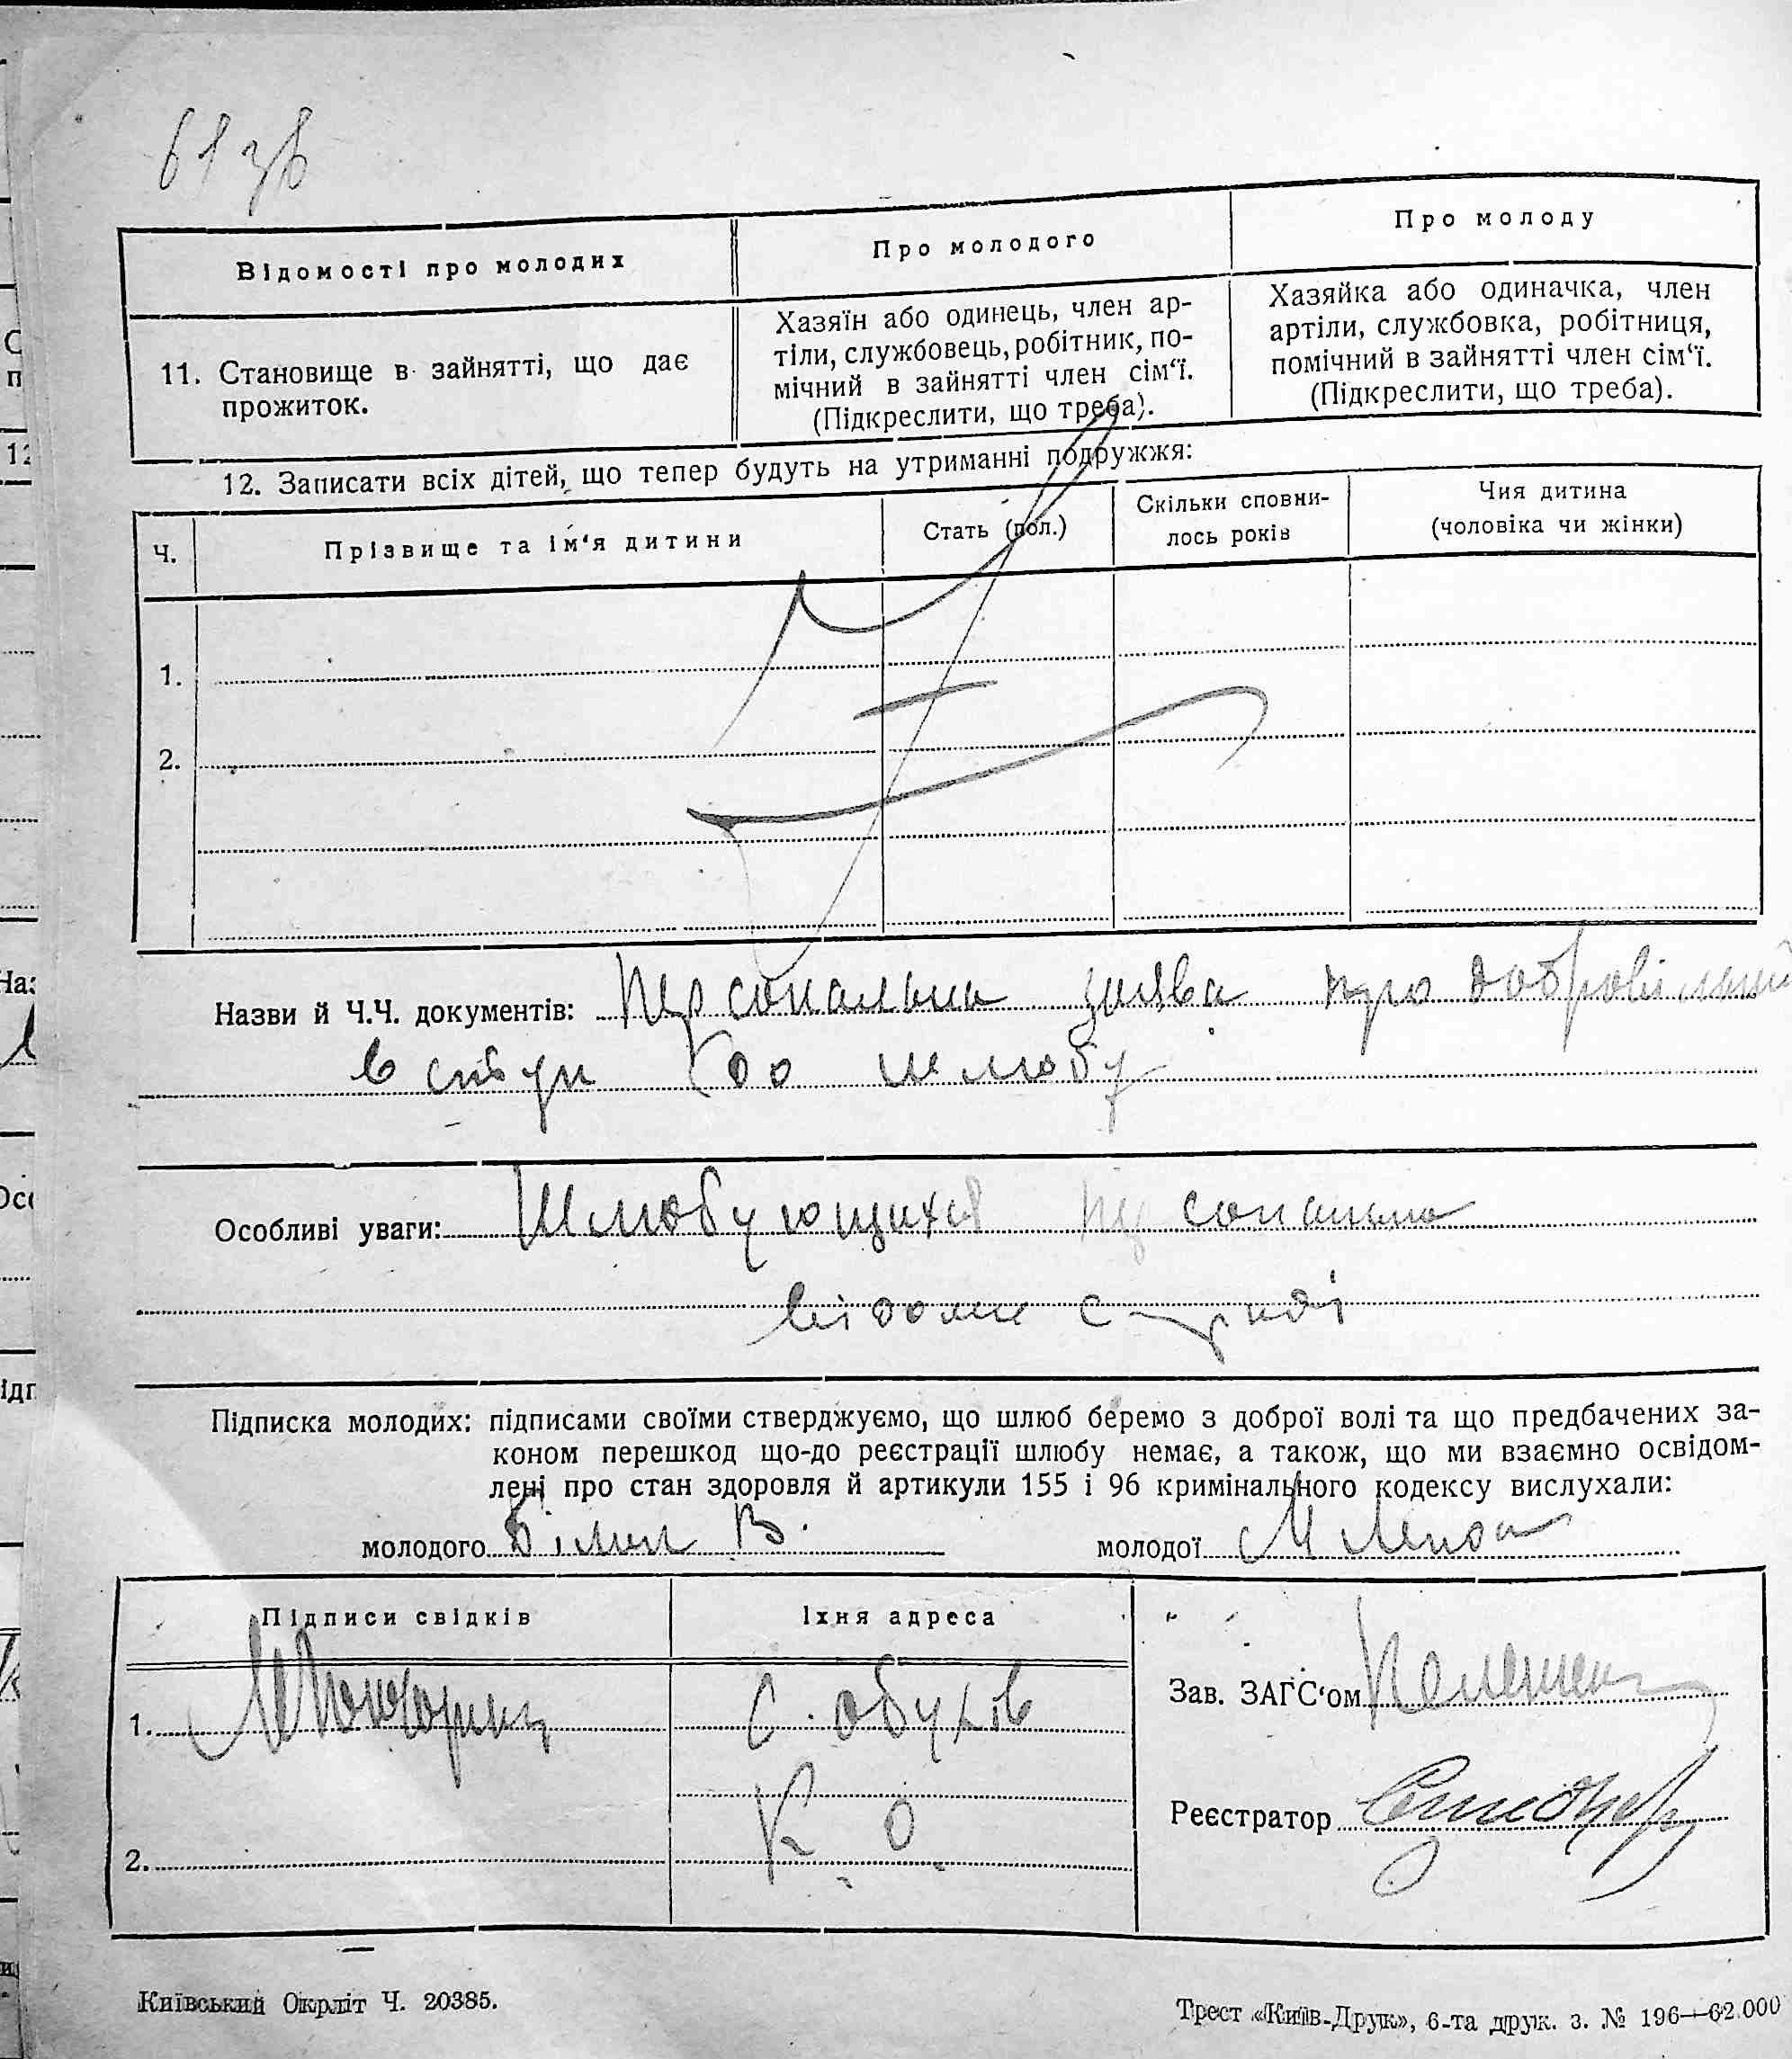 61 зв
Відомості про молодих
Про молодого
Про молоду
11. Становище в зайнятті, що дає
прожиток.
Хазяїн або одинець, член ар-
тіли, службовець, робітник, по-
мічний в зайнятті член сім‘ї.
(Підкреслити, що треба).
Хазяйка або одиначка, член
артіли, службовка, робітниця,
помічний в зайнятті член сім‘ї.
(Підкреслити, що треба).
12. Записати всіх дітей, що тепер будуть на утриманні подружжя:
Ч.
Прізвище та ім‘я дитини
Стать (пол.)
Скільки сповни-
лось років
Чия дитина
(чоловіка чи жінки)
1.
2.
Назви й Ч.Ч. документів: Персональна заява про добровільний
вступ до шлюбу
Особливі уваги: Шлюбующихся персонально
відомі
Підписка молодих: підписами своїми стверджуємо, що шлюб беремо з доброї волі та що предбачених за-
коном перешкод що-до реєстрації шлюбу немає, а також, що ми взаємно освідом-
лені про стан здоровля й артикули 155 і 96 кримінального кодексу вислухали:
молодого Білий В. молодої
Підписи свідків
Їхня адреса
1.
с. Обухів
К. О.
2.
Зав. ЗАГС‘ом
Реєстратор
Київський Окрліт Ч. 20385.
Трест «Київ-Друк», 6-та друк. з. № 196—62.000